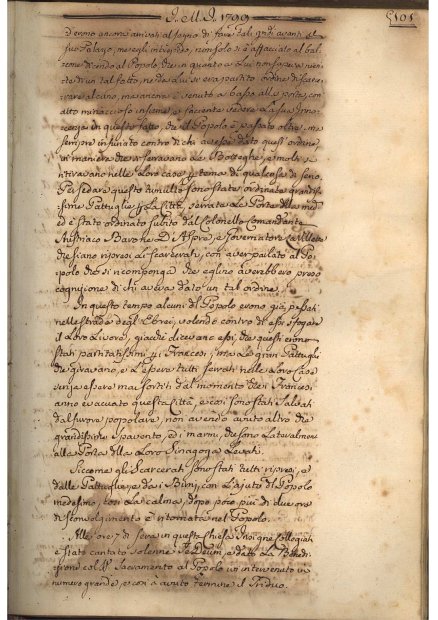 J. M. J. 1799
5101
erano ancora arrivati al segno di fare tali gridi avanti il
suo Palazo, ma egli intrepido, non solo si è affacciato al bal-
cone dicendo al Popolo che in quanto a Lui non sapeva nien-
te di un tal fatto, ne da lui si era partito ordine di scarce-
rare alcuno, ma ancora è venuto a basso alle porte, con
alto minaccioso insieme, e facente vedere la sua Inno-
cenza in questo fatto, che il Popolo è passato oltre, ma
sempre infuriato contro di chi avesse dato quest' ordine,
in maniere che si serravano le Botteghe, e molti si
ritiravano nelle Loro case per tema di qualcosa di serio.
Per sedare questo tumulto sono state ordinate grandis-
sime Pattuglie per la Città, serrate le Porte della med.
ed è stato ordinato subito dal Colonello Comandante
Austriaco Barone D'Aspre, e Governatore
che siano ripresi gli Scarcerati, con aver parlato al Po-
polo che si ricomponga che eglino averebbero preso
cognizione di chi aveva dato un tal ordine.
In questo tempo alcuni del Popolo erono già passati
nelle strade degl' Ebrei, volendo contro di essi sfogare
il Loro Livore, giacchè dicevano essi, che questi erono
stati partitantissimi per i Francesi, ma le gran Pattuglie
che giravano, e l'essere tutti serrati nelle Loro case
senza essere mai sortiti dal momento che i Francesi
anno evacuato questa Città, e così sono stati salvati
dal furore popolare, non avendo avuto altro che
grandissimo spavento, ed i marmi, che sono
alla Porta della Loro Sinagoga Levati.
Siccome gli Scarcerati sono stati tutti ripresi, e
dalle Pattuglie, e da i Birri, con l'ajuto del Popolo
medesimo, così la calma, dopo poco più di due ore
di sconvolgimento è ritornata nel Popolo.
Alle ore 7 di sera in questa Chiesa
è stato cantato solenne Te Deum, e dato la Bened-
izione col SS. Sacramento al Popolo ivi intervenuto in
numero grande, e così à avuto termine il Triduo.